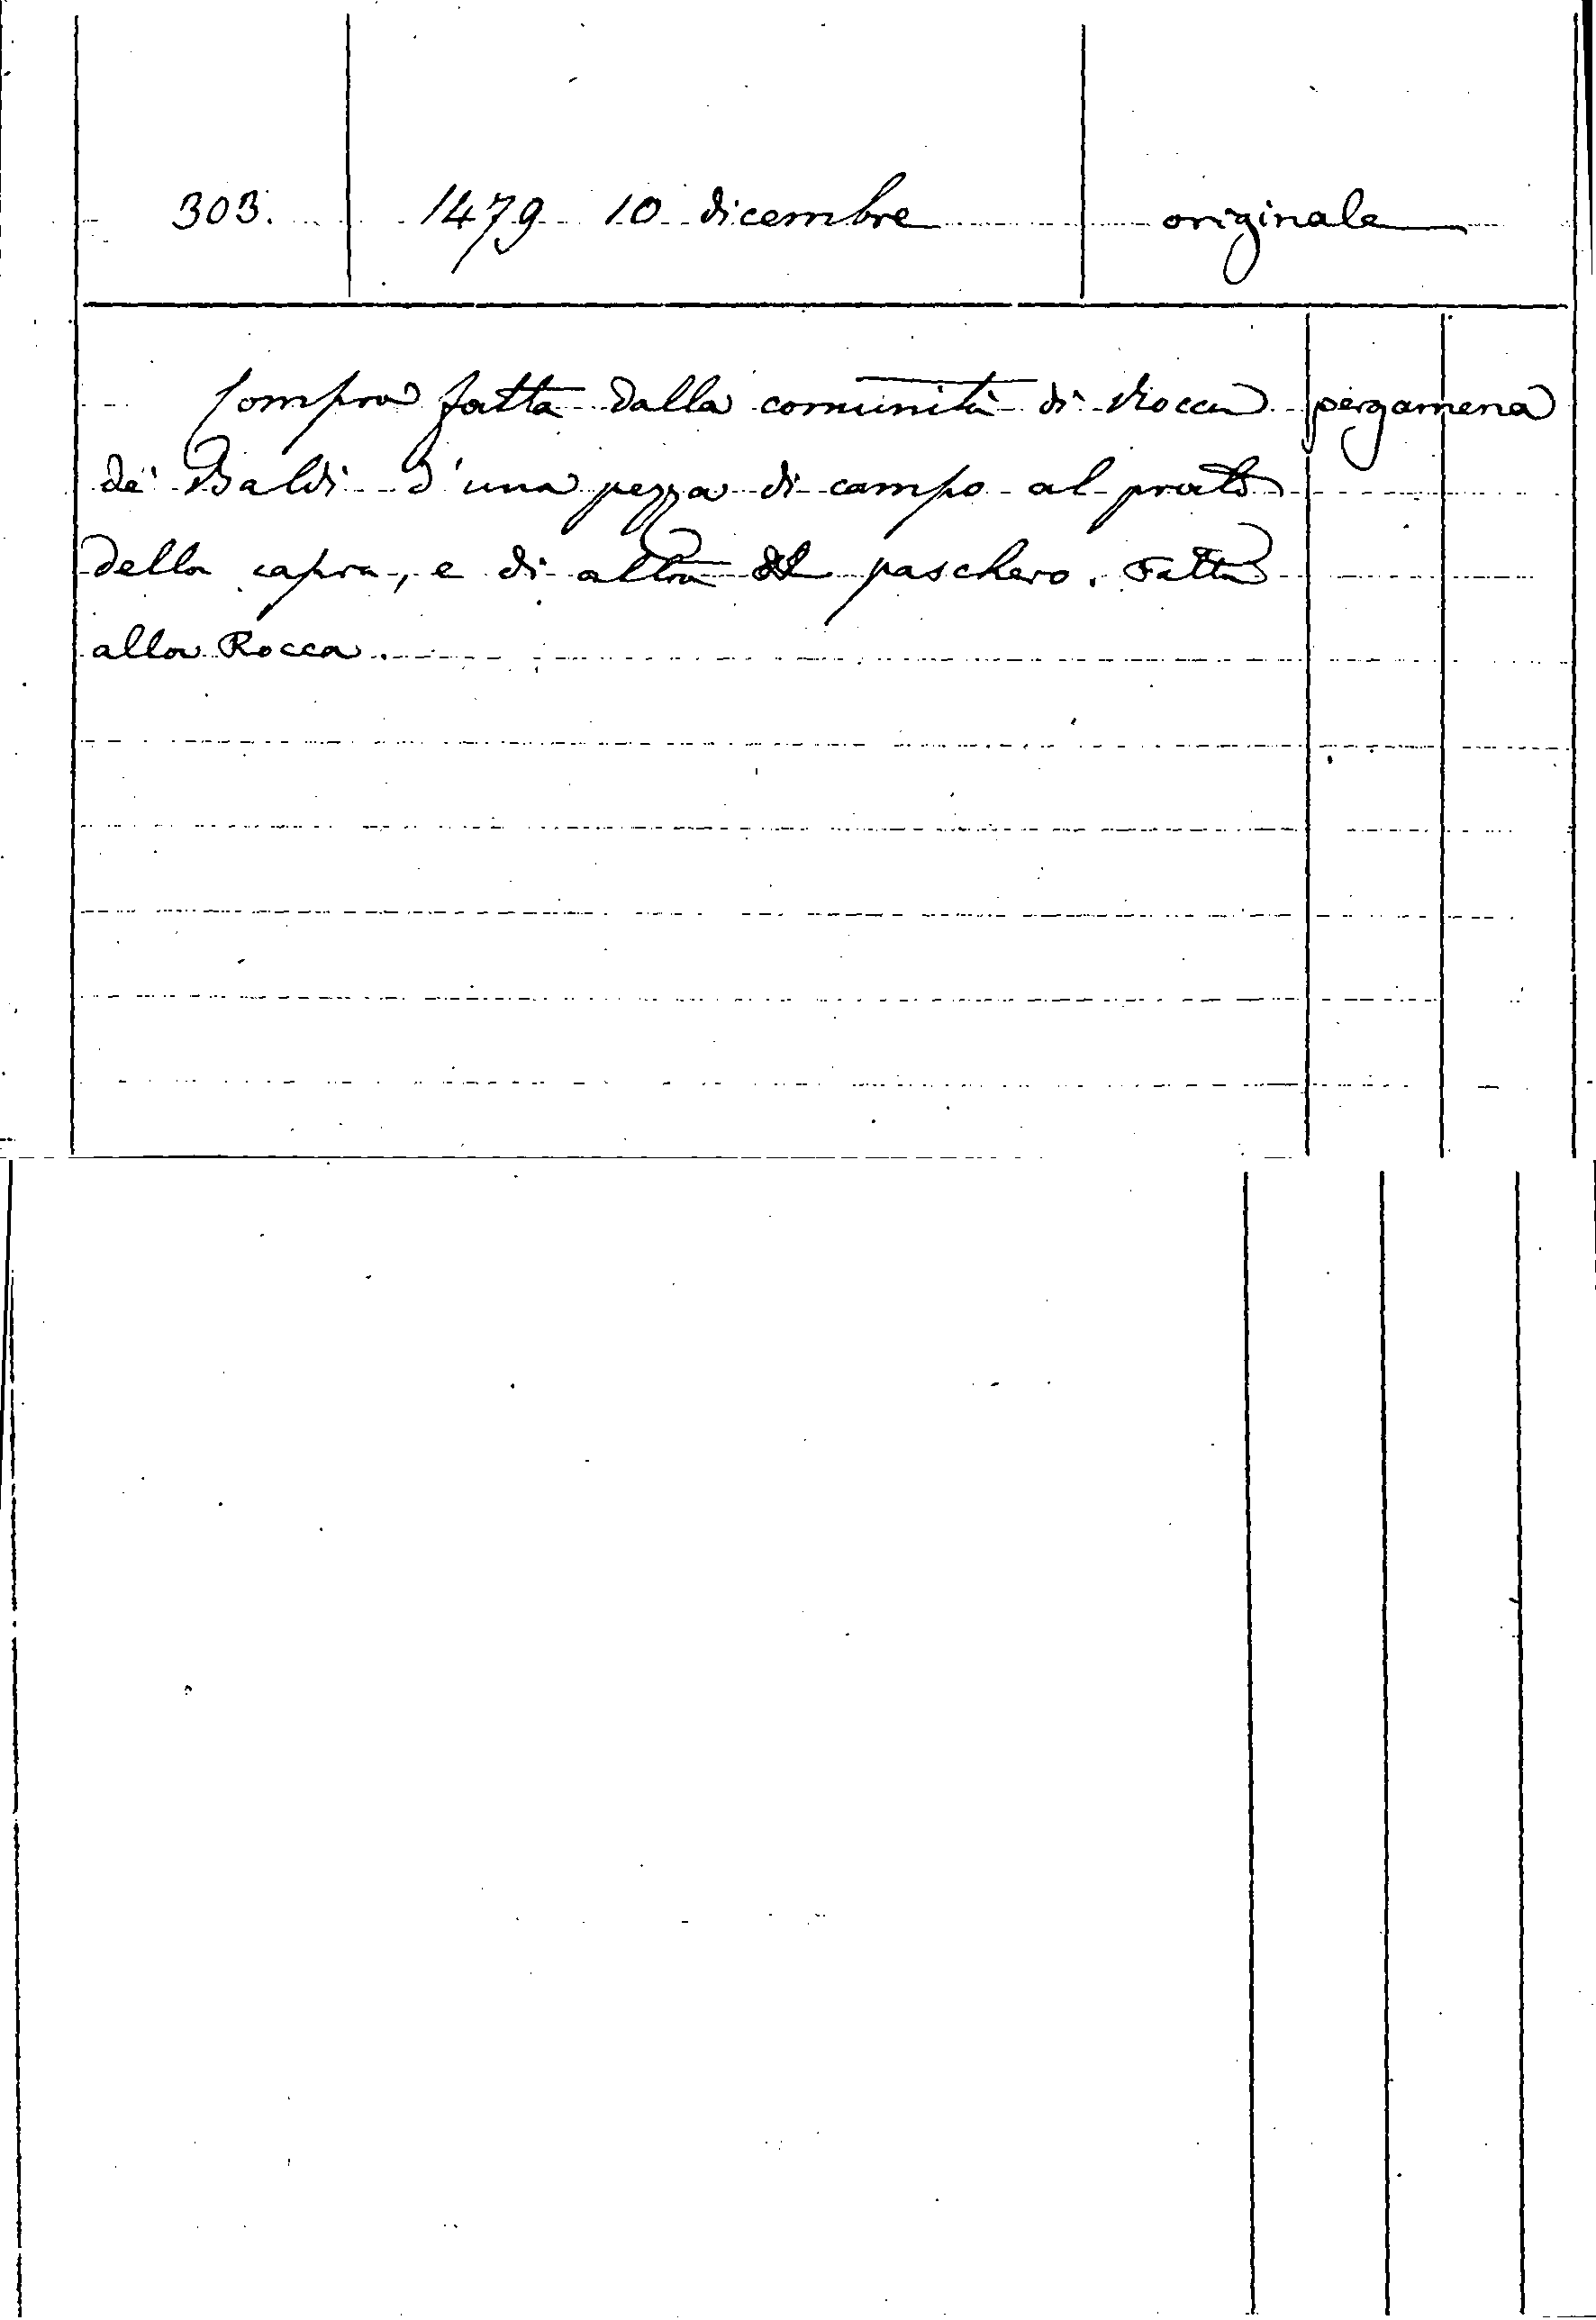 303. 1479 10 dicembre originale
Compra fatta dalla comunità di Rocca pergamena
de' Baldi d'una pezza di campo al prato
della capra, e di altra al paschero. Fatta
alla Rocca.